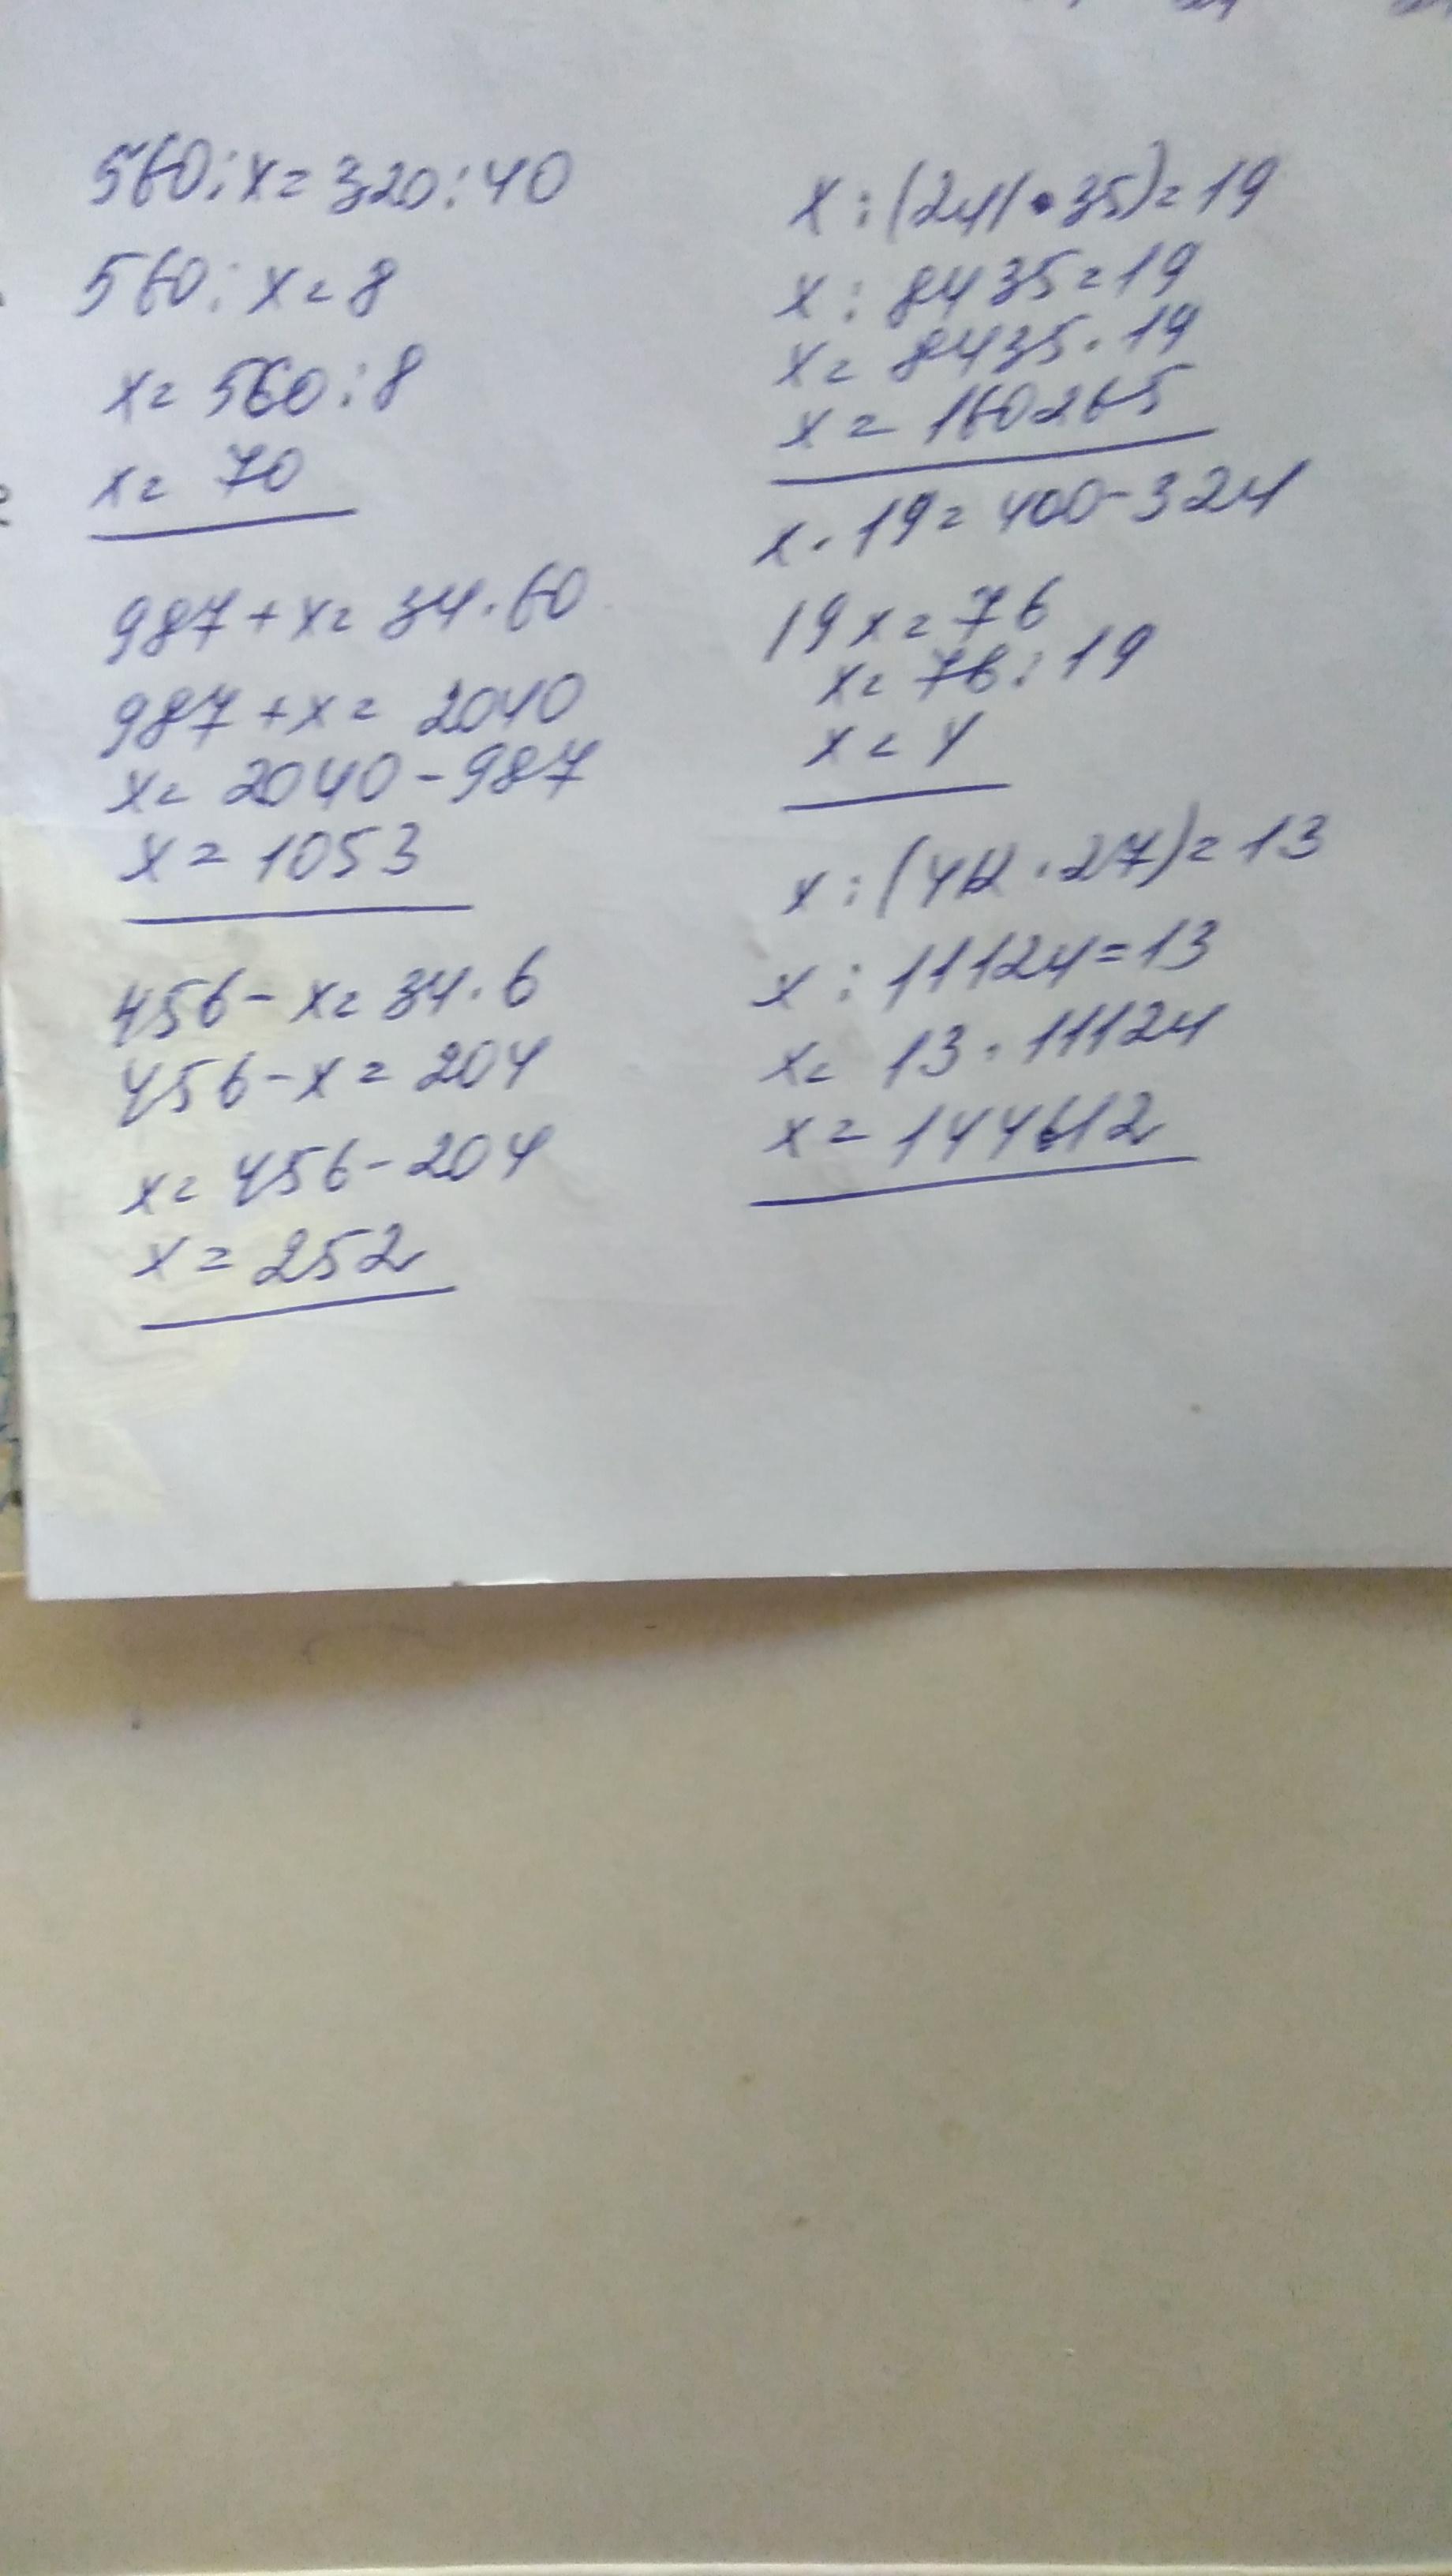 560:x=320:40
560:x=8
x=560:8
x=70
987+x=34·60
987+x=2040
x=2040-987
x=1053
456-x=34·6
456-x=204
x=456-204
x=252
x:(241·35)=19
x:8435=19
x=8435·19
x=160265
x·19=400-324
19x=76
x=76:19
x=4
x:(412·27)=13
x:11124=13
x=13·11124
x=144612